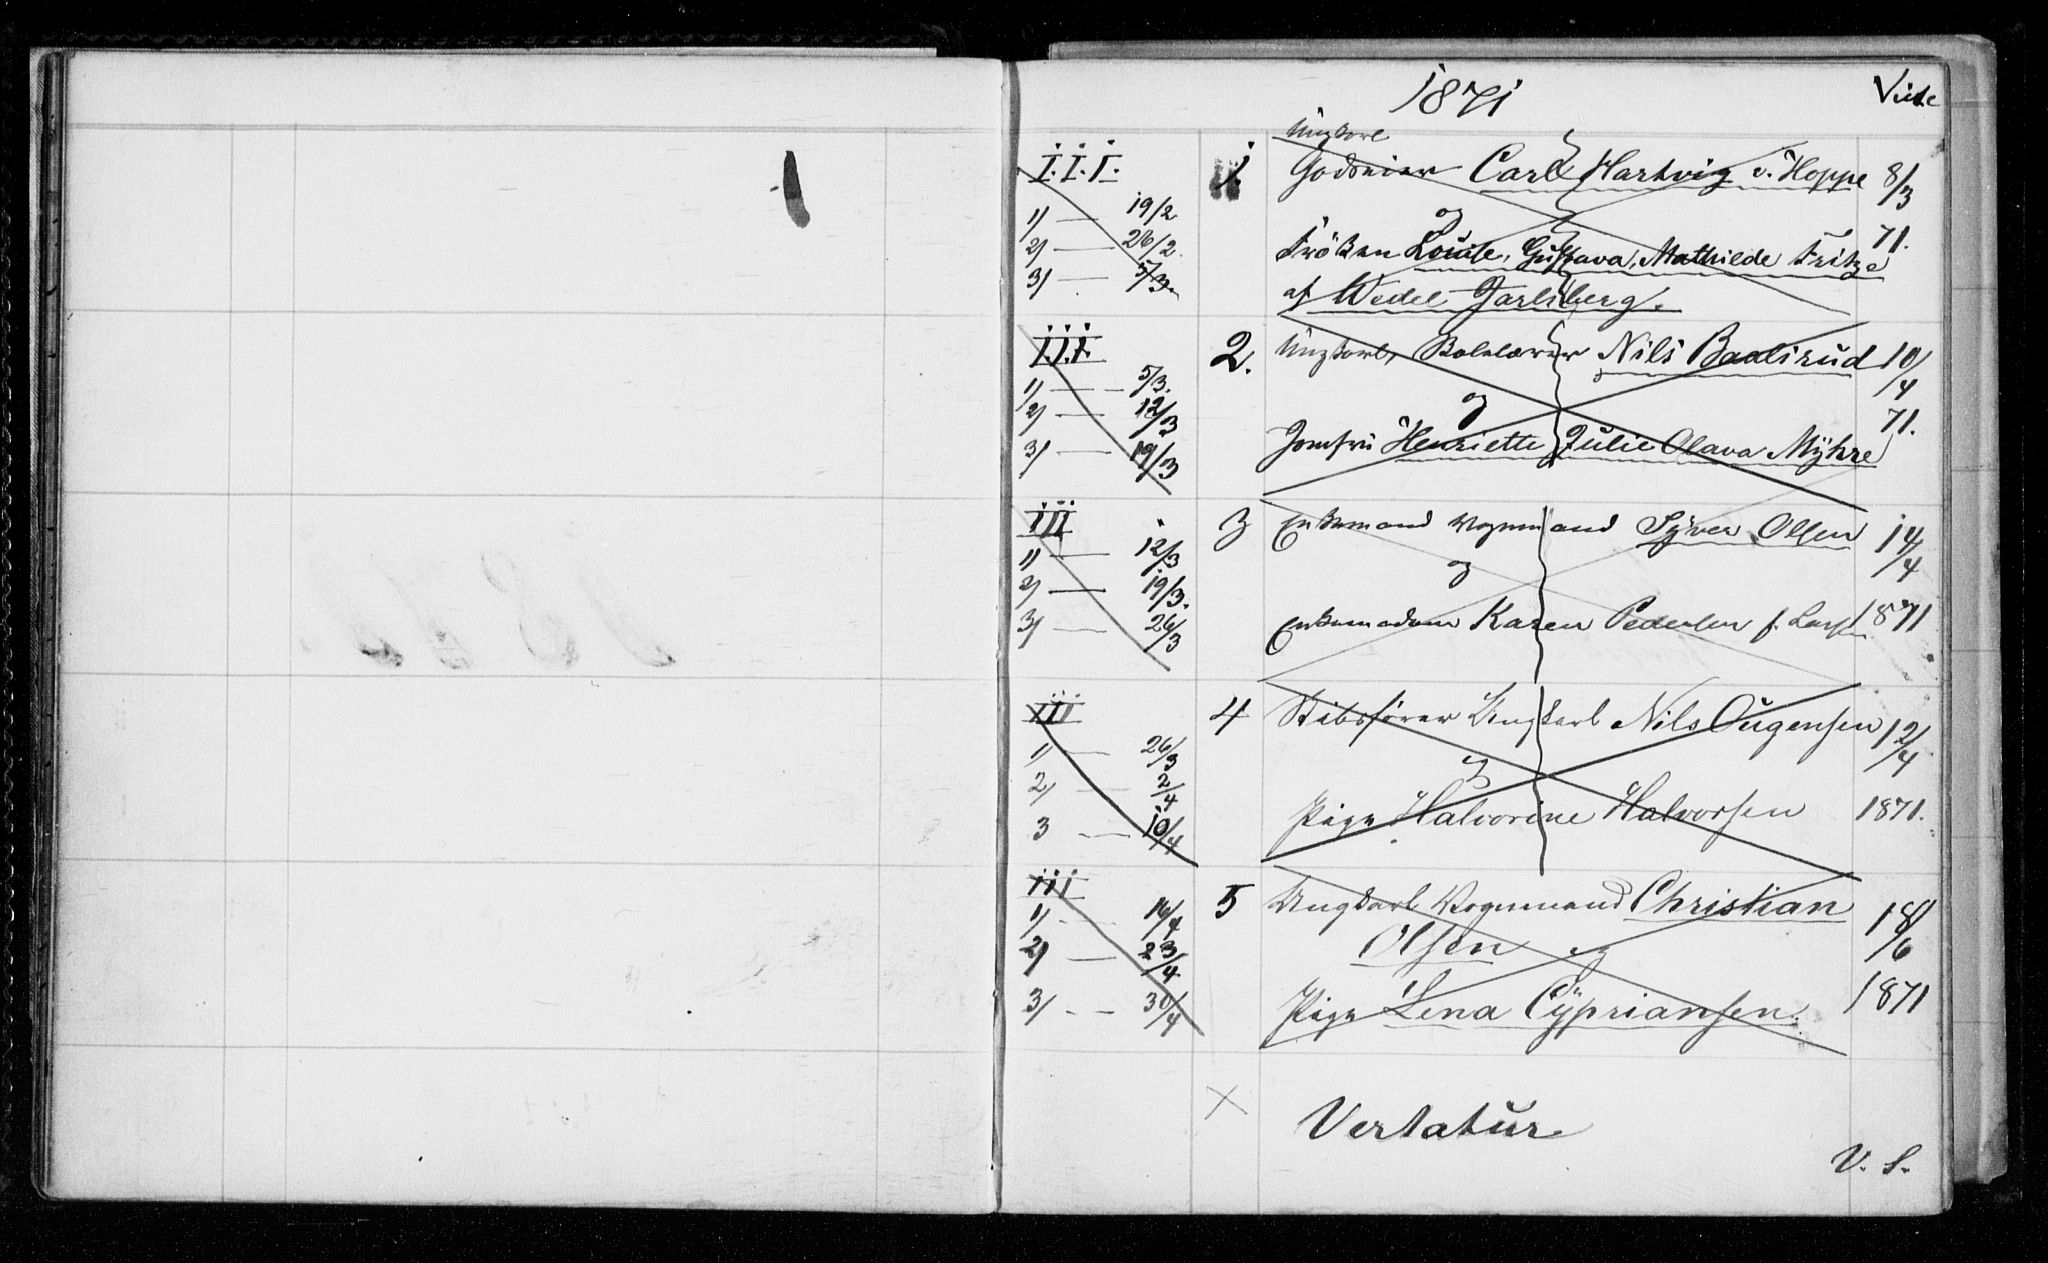 1871 Viede
I.I.I. 1. Ungkarl
Godseier Carl Hartvig v. Hoppe 8/3
1) — 19/2 og 71.
2) — 26/2. Fröken Louise, Gustava, Mathilde Fritze
3) — 5/3. af Wedel Jarlsberg.
I.I.I. 2. Ungkarl, Skolelærer Nils Baalsrud 10/4
1) — 5/3. og 71.
2) — 12/3
3) — 19/3 Jomfru Henriette Julie Olava Myhre
III 3 Enkemand Vognmand Syver Olsen 14/4
1) — 12/3 og
2) — 19/3.
3) — 26/3 Enkemadam Karen Pedersen f. Larsen 1871
III 4 Skibsfører Ungkarl Nils Ougensen 12/4
1) — 26/3 og
2) — 2/4
3 — 10/4 Pige Halvorine Halvorsen 1871.
III 5 Ungkarl Vognmand Christian 18/6
1) — 16/4 Olsen og
2) — 23/4
3) — 30/4 Pige Lena Cÿpriansen. 1871
× Vertatur
V. S.